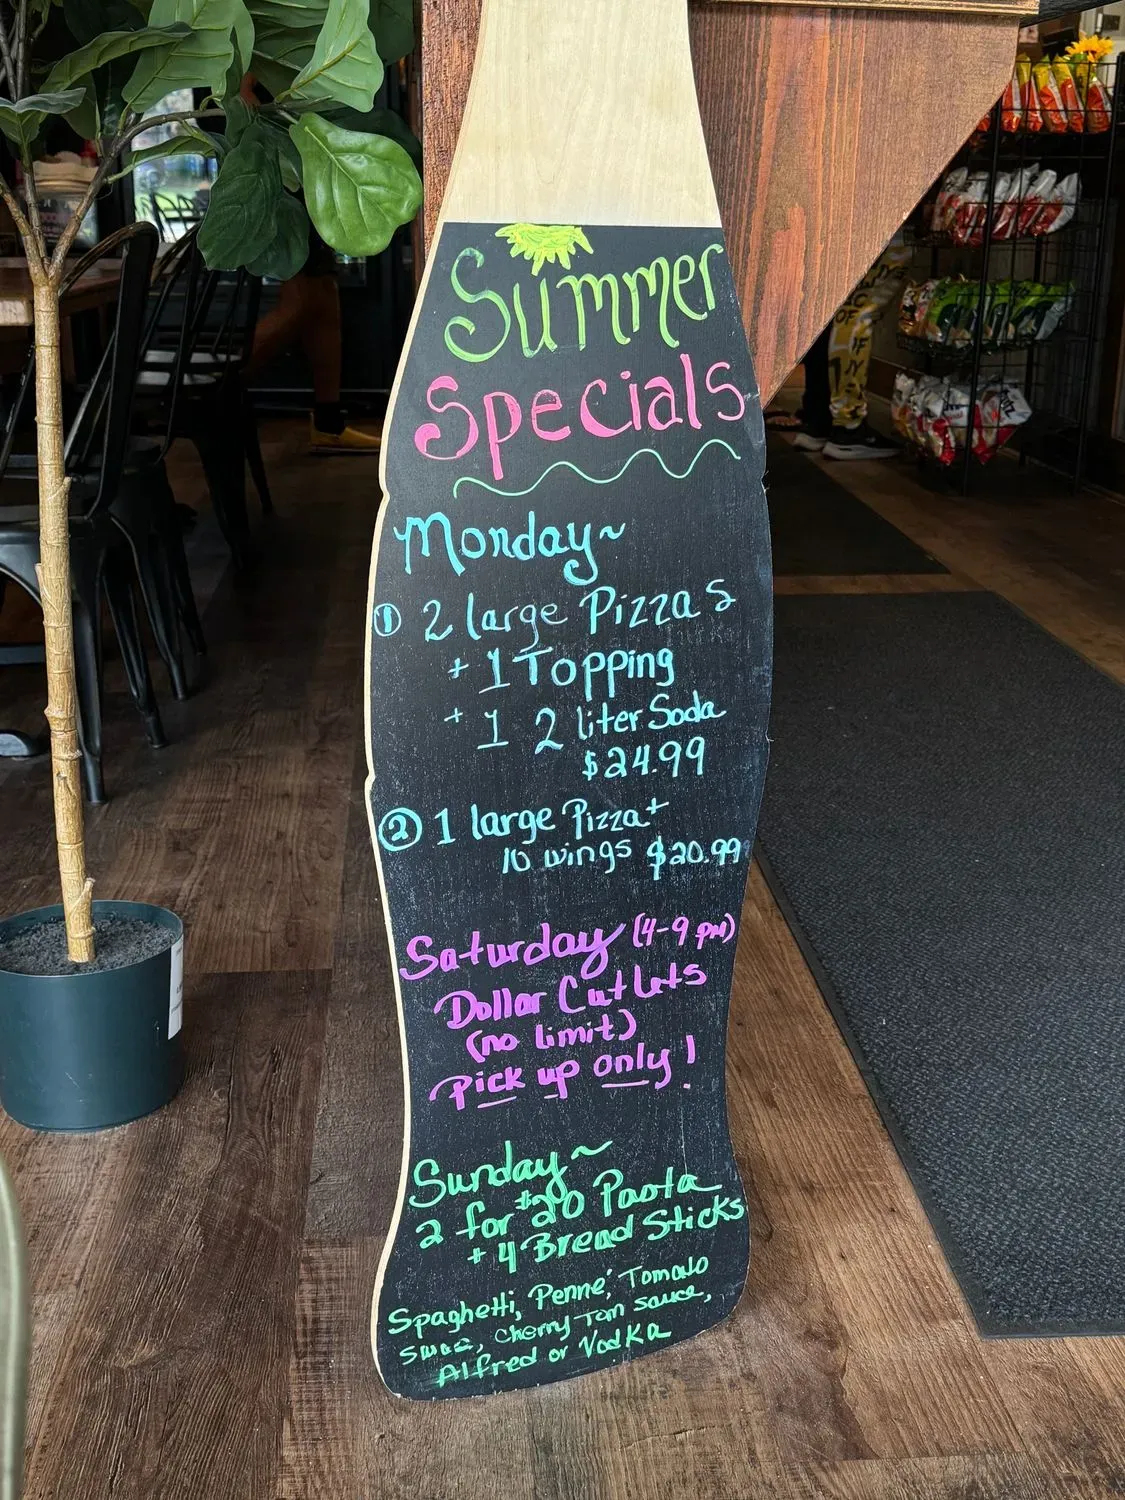 Summer
Specials
Monday~
① 2 large Pizzas
+ 1 Topping
+ 1 2 liter Soda
$24.99
② 1 large Pizza +
10 wings $20.99
Saturday (4-9 pm)
Dollar Cutlets
(no limit)
Pick up only!
Sunday~
2 for $20 Pasta
+ 4 Bread Sticks
Spaghetti, Penne, Tomato
Cherry Tom sauce,
Alfred or Vodka